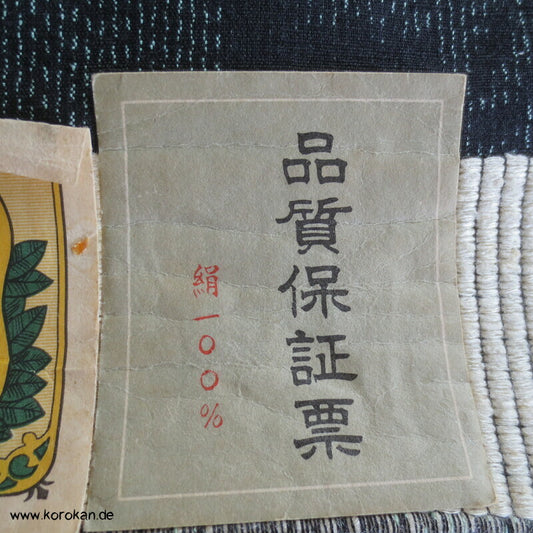 品質保証票
絹一〇〇%
www.korokan.de